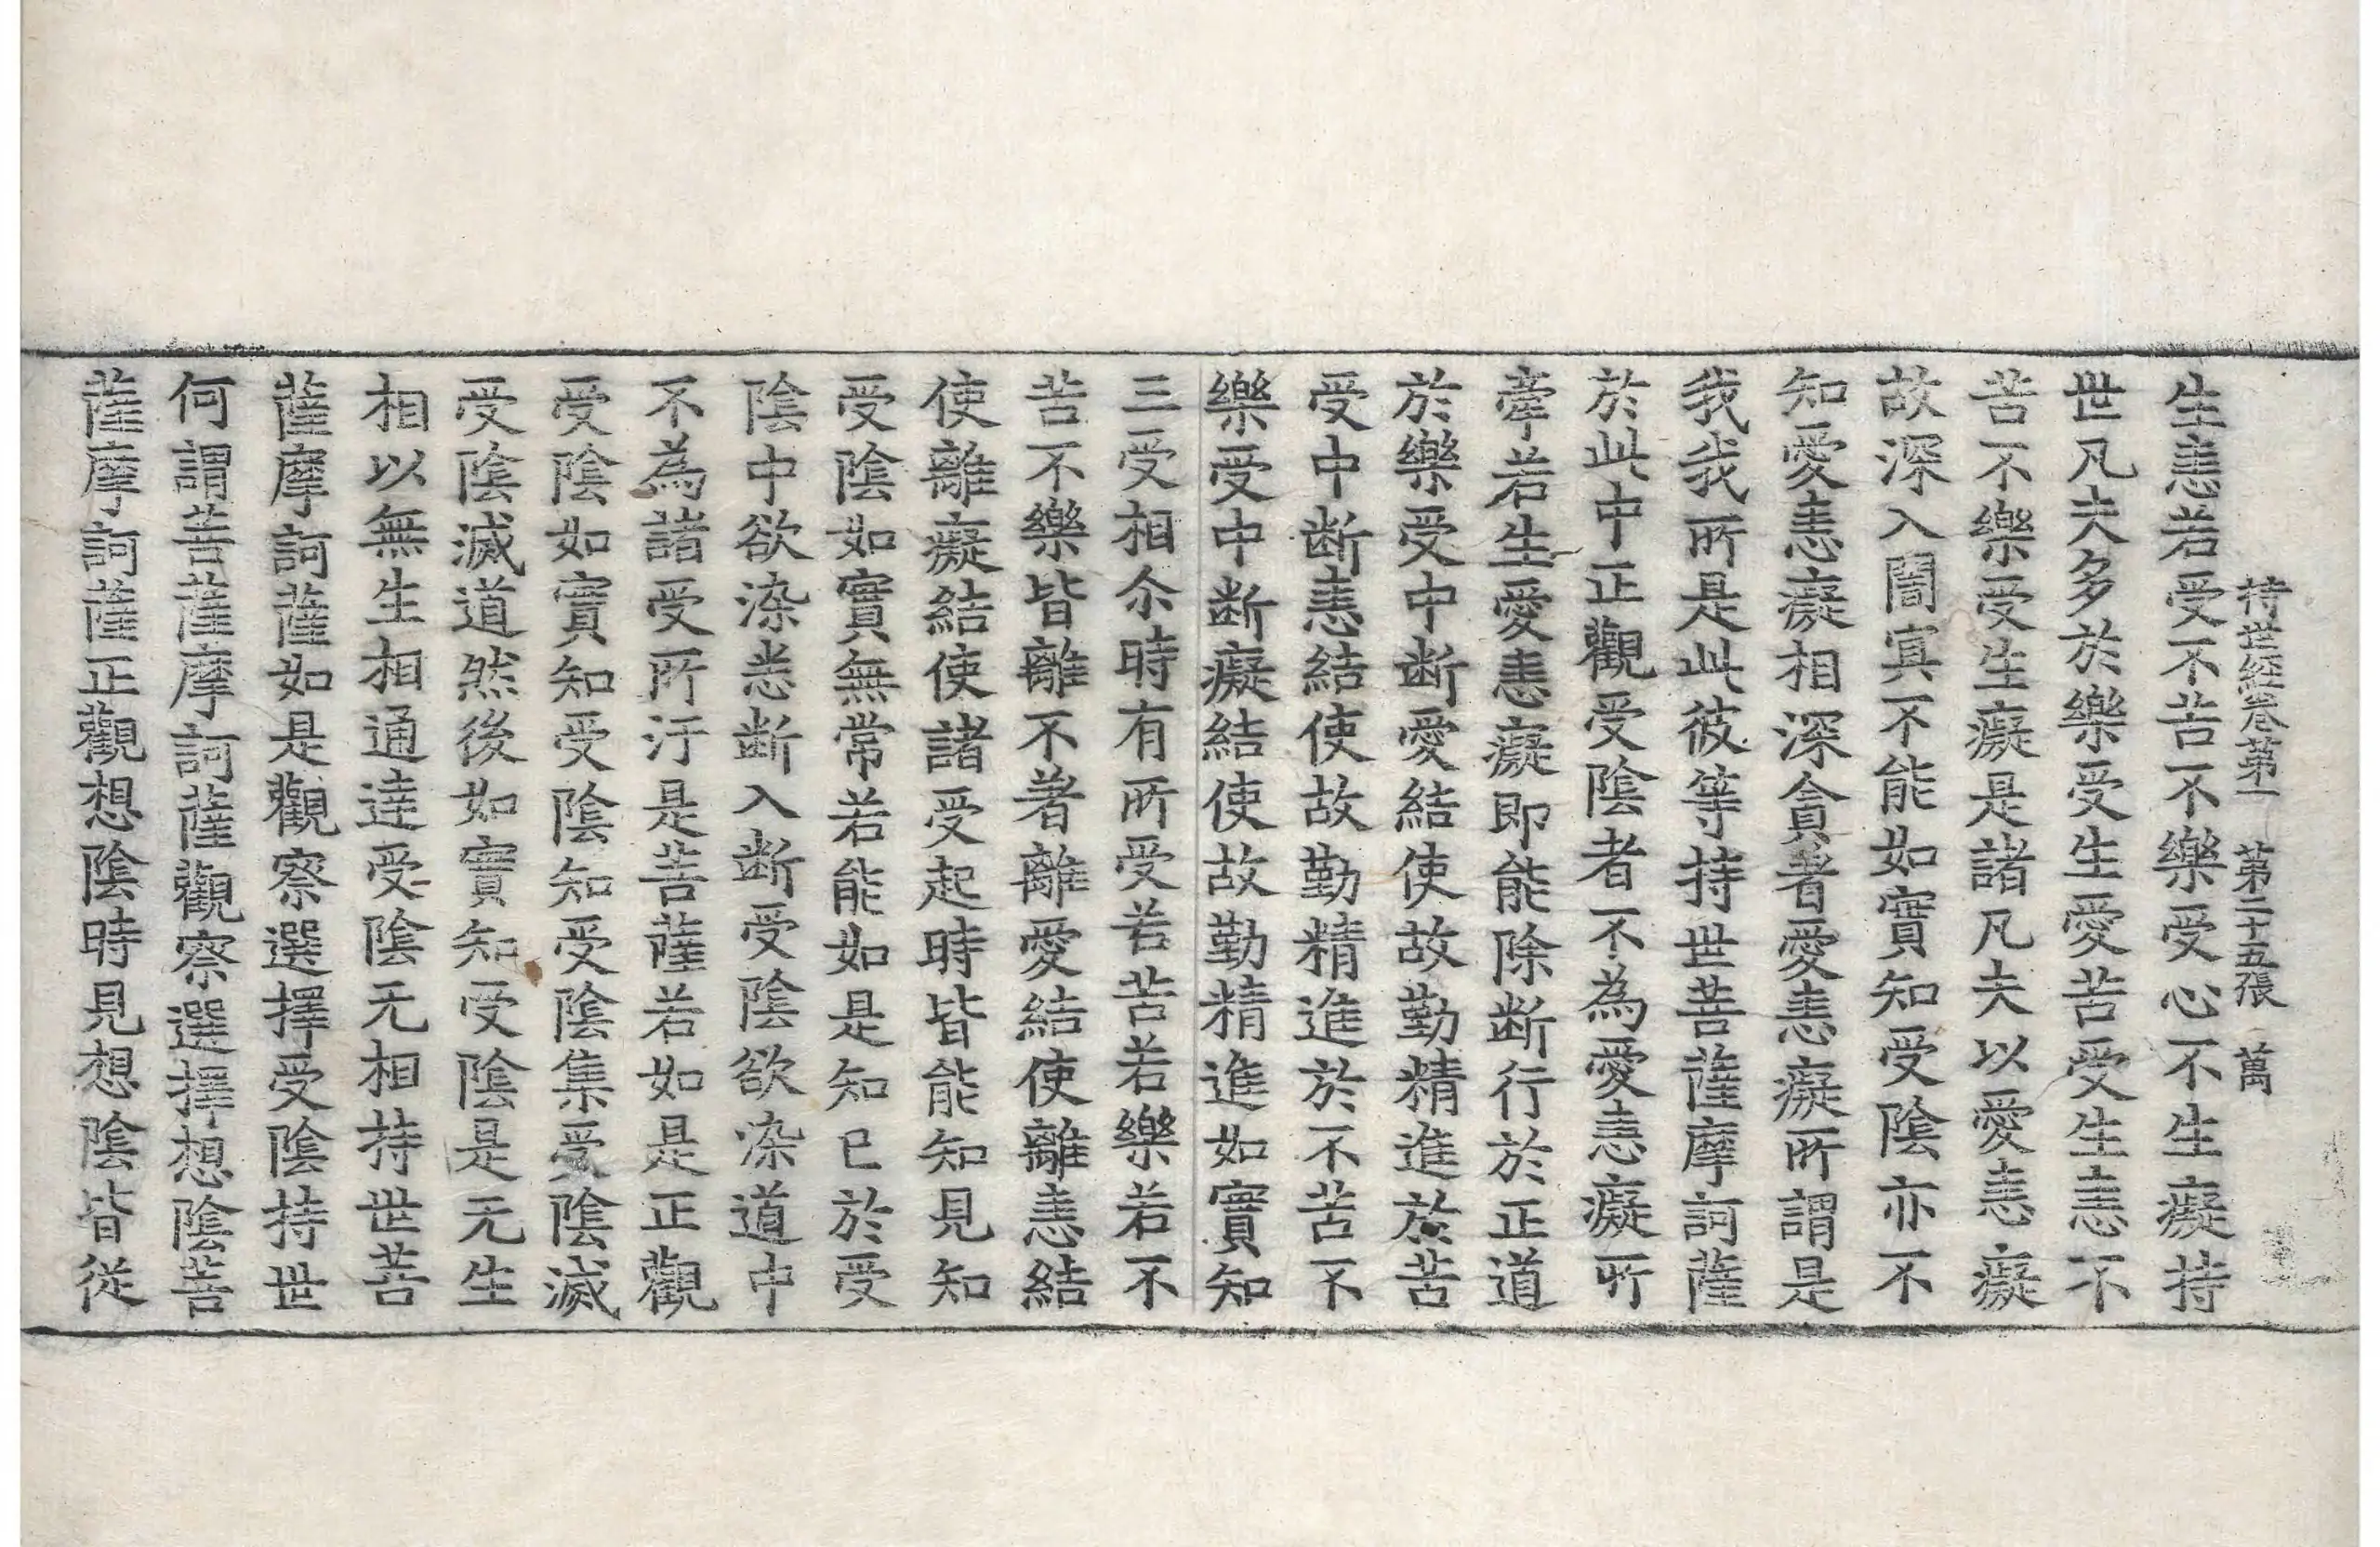 持世経卷第一 第二十五張 萬
生恚若受不苦不樂受心不生癡持
世凡夫多於樂受生愛苦受生恚不
苦不樂受生癡是諸凡夫以愛恚癡
故深入闇㝠不能如實知受陰亦不
知愛恚癡相深貪著愛恚癡所謂是
我我所是此彼等持世菩薩摩訶薩
於此中正觀受陰者不為愛恚癡所
牽若生愛恚癡即能除断行於正道
於樂受中断愛結使故勤精進於苦
受中断恚結使故勤精進於不苦不
樂受中断癡結使故勤精進如實知
三受相尒時有所受若苦若樂若不
苦不樂皆離不著離愛結使離恚結
使離癡結使諸受起時皆能知見知
受陰如實無常若能如是知已於受
陰中欲染悉断入断受陰欲染道中
不為諸受所汙是菩薩若如是正觀
受陰如實知受陰知受陰集受陰滅
受陰滅道然後如實知受陰是无生
相以無生相通達受陰无相持世菩
薩摩訶薩如是觀察選擇受陰持世
何謂菩薩摩訶薩觀察選擇想陰菩
薩摩訶薩正觀想陰時見想陰皆從